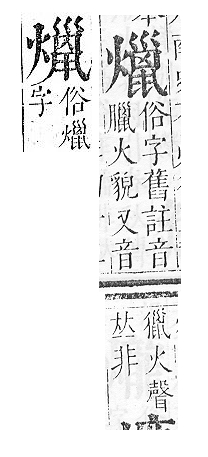 爉
俗字舊註音
臘火貌又音
獵火聲
𠀤非
爉
俗爉
字